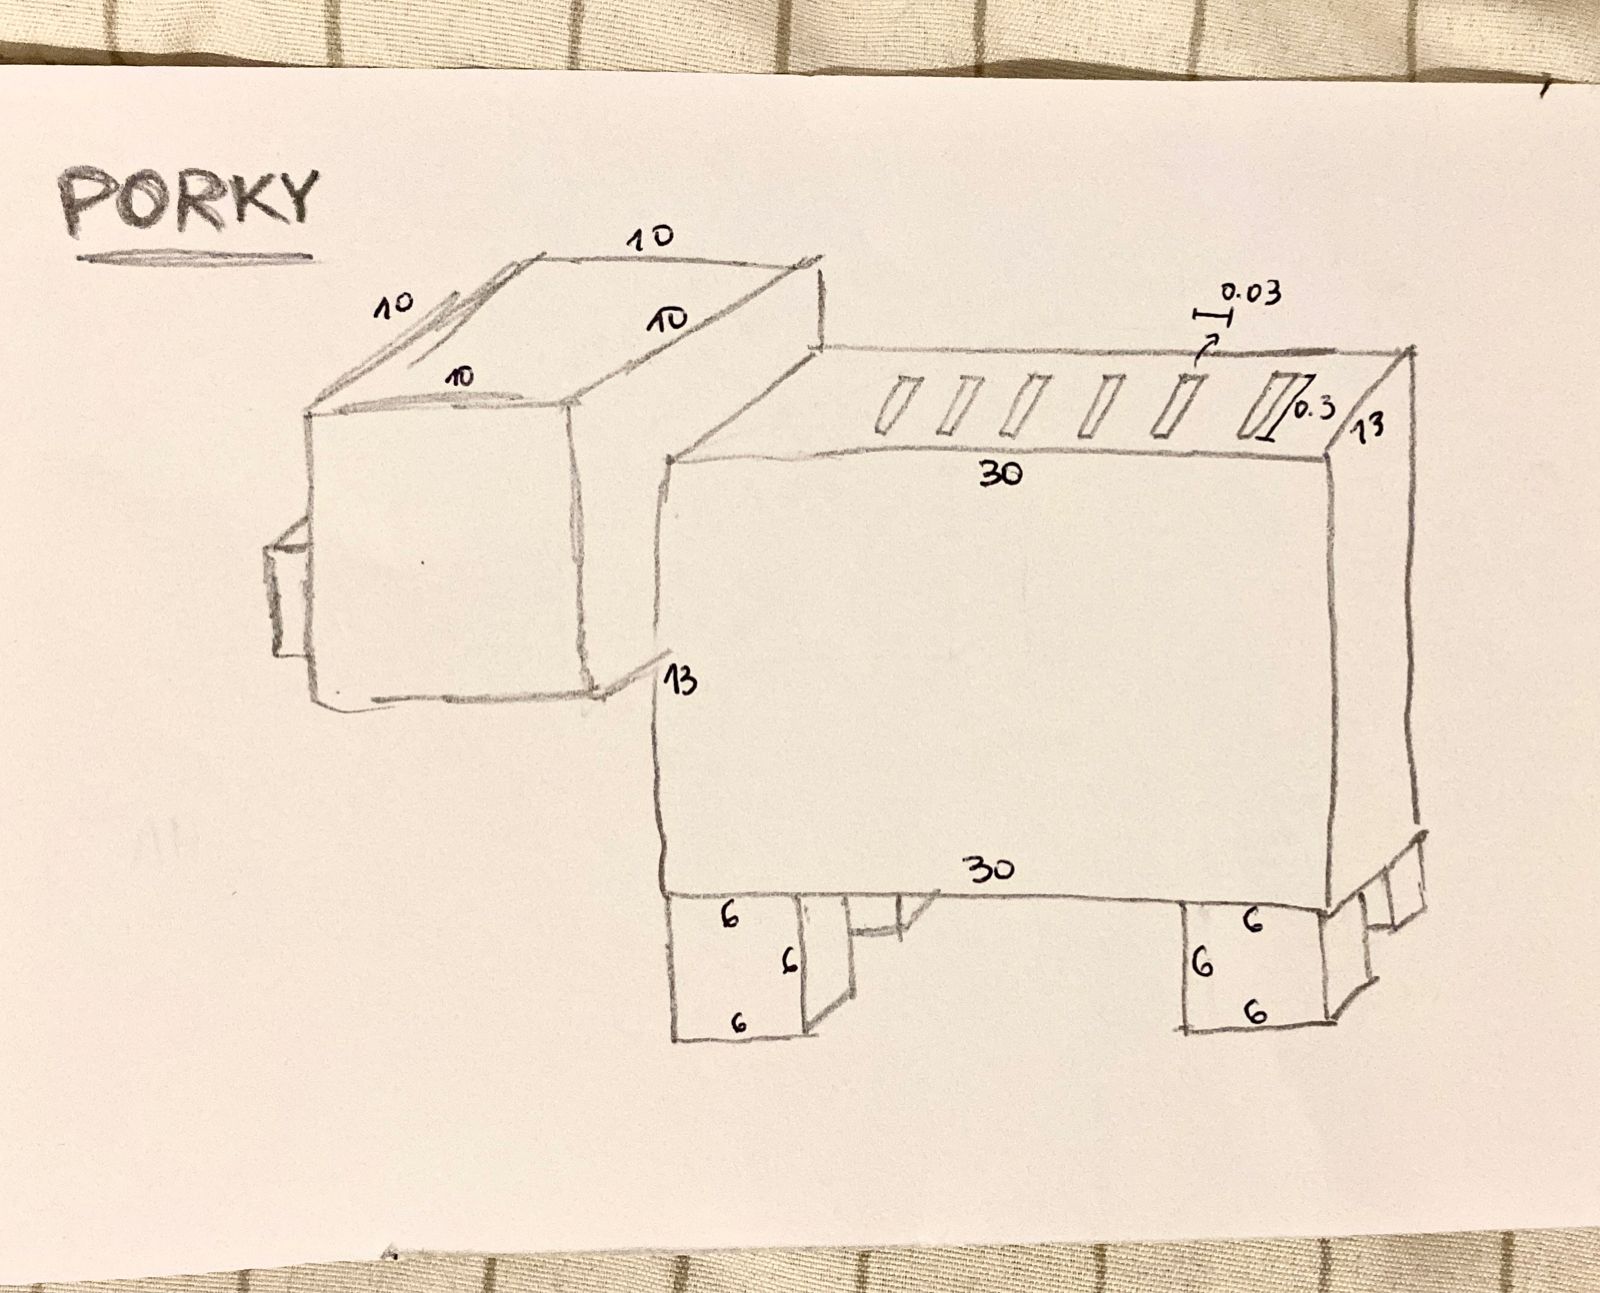 PORKY
10
10
10
10
0.03
0.3
13
30
13
30
6
6
6
6
6
6